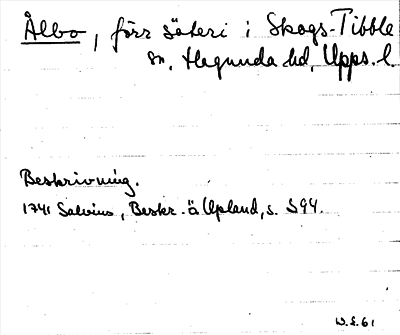 Ålbo, förr säteri i Skogs-Tibble
sn, Hagunda hd, Upps. l.
Beskrivning.
1741 Salvius, Beskr. ö. Upland, s. 594.
W.L. 61